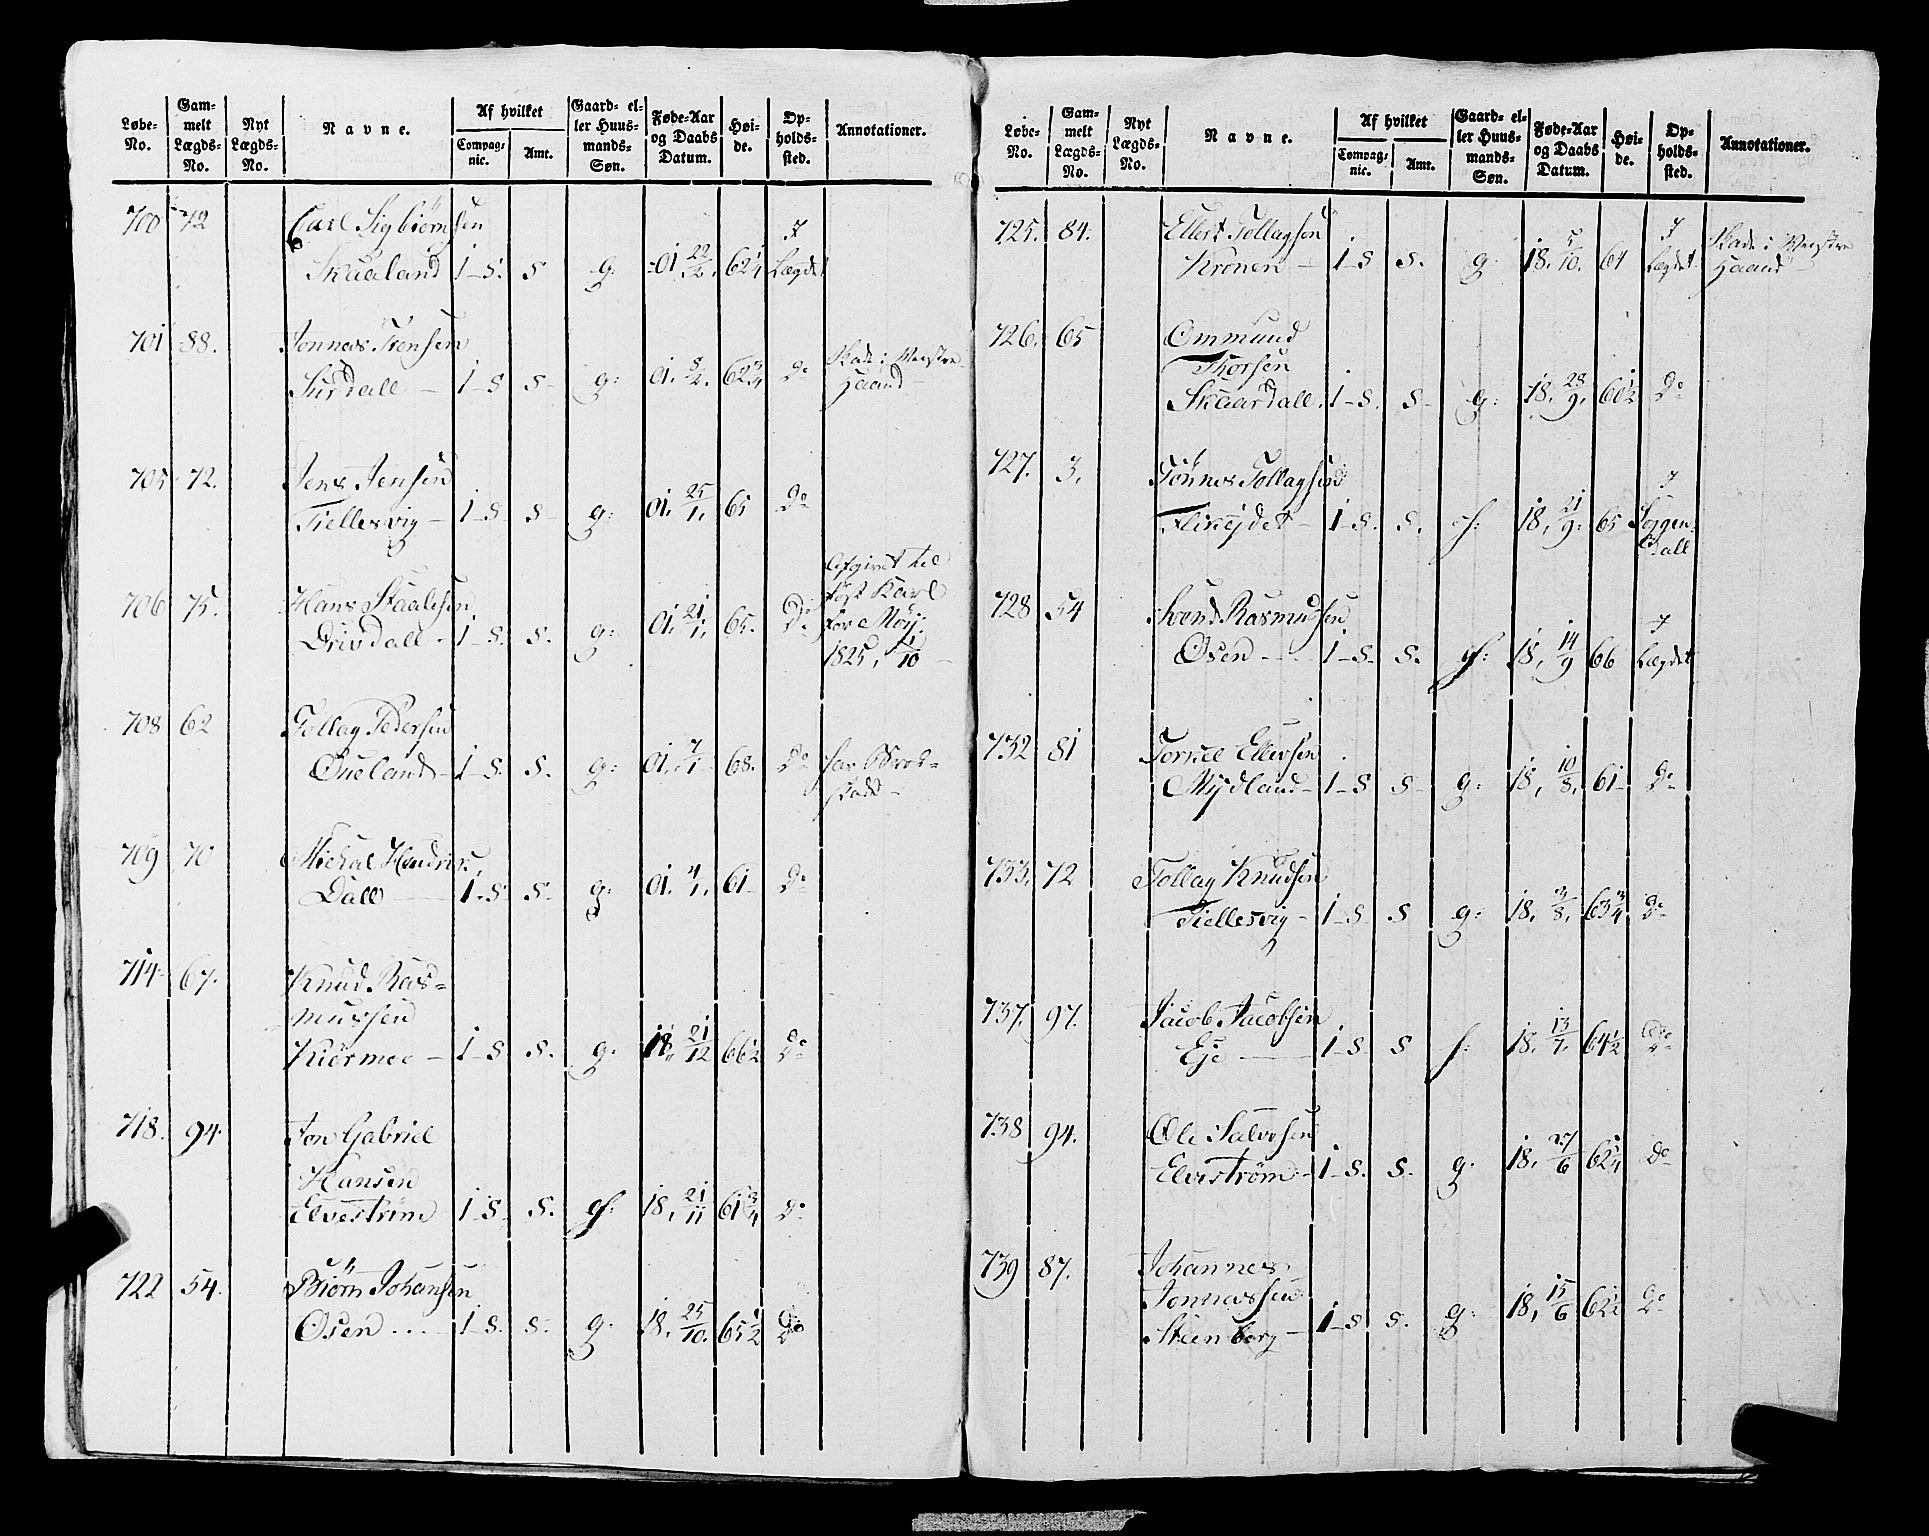 Løbe-No. Gam-melt Lægds-No. Nyt Lægds-No. Navne. Af hvilket Compag-nie. Amt. Gaard- el-ler Huus-mands-Søn. Føde-Aar og Daabs Datum. Høi-de. Op-holds-sted. Annotationer.
700 72 Carl Sigbiørnsen I
Skaaland 1-S. S g: 01 22/2. 62 1/4 Lægdet
701 88. Jonnas Tronsen Skade i Venstre
Surdall 1-S S- g: 01. 8/2. 62 3/4 Do Haand
705 72. Jens Jensen
Tiellesvig 1-S S g: 01. 25/1. 65 Do
Afgivet til
706 75. Hans Staalesen Karl
Drivdall 1-S. S. g: 01. 21/1. 65. Do for
1825, 1/10
708 62 Tollag Pedersen
Øueland 1-S. S. g: 01. 7/1 68. Do har
709 70 Michal Hendrix.
Dall 1-S. S- g: 01. 4/1. 61- Do
714 67. Knud Ras=
mussen
Kiørmoe 1-S S. g. 18. 21/12 66 1/2 Do
718. 94. Jon Gabriel
Hansen
Elvestrøm 1-S S. f: 18. 21/11 61 3/4 Do
722 54. Biørn Johansen
Osen 1-S. S. g. 18. 25/10. 65 1/2 Do
Løbe-No. Gam-melt Lægds-No. Nyt Lægds-No. Navne. Af hvilket Compag-nie. Amt. Gaard- el-ler Huus-mands-Søn. Føde-Aar og Daabs Datum. Høi-de. Op-holds-sted. Annotationer.
725. 84. Ellert Tollagsen I Skade i Venstre
Kronen 1-S S. g: 18. 5/10. 64 Lægdet Haand
726. 65 Ommund
Thorsen
Skaardall. 1-S. S g: 18. 28/9. 60 1/2 Do
727. 3. Tønnes Tollagsen I
Fliseydet 1-S. S. f: 18. 21/9. 65 Soggen=
dall
728 54 Svend Rasmussen I
Osen 1-S. S. f: 18. 14/9 66 Lægdet
732 81 Tornel Ellevsen
Mydland 1-S S g: 18. 10/8. 61- Do
733. 72 Tollag Knudsen
Tiellesvig 1-S S g: 18. 3/8. 63 3/4 Do
737. 97. Jacob Jacobsen
Eje 1-S S f: 18. 13/7. 64 1/2 Do
738 94. Ole Salvesen
Elvestrøm 1-S. S. g. 18. 27/6 62 1/4 Do
739 87. Johannes
Jonnassen
Steenberg 1-S S. g: 18. 15/6 62 1/2 Do